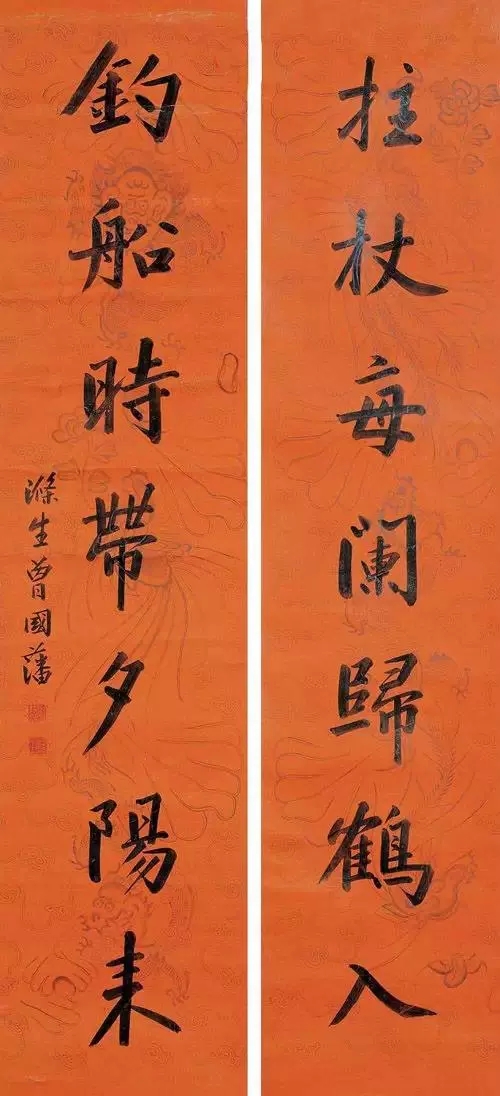 拄杖每闌歸鶴入
釣船時帶夕陽來
滌生曾國藩